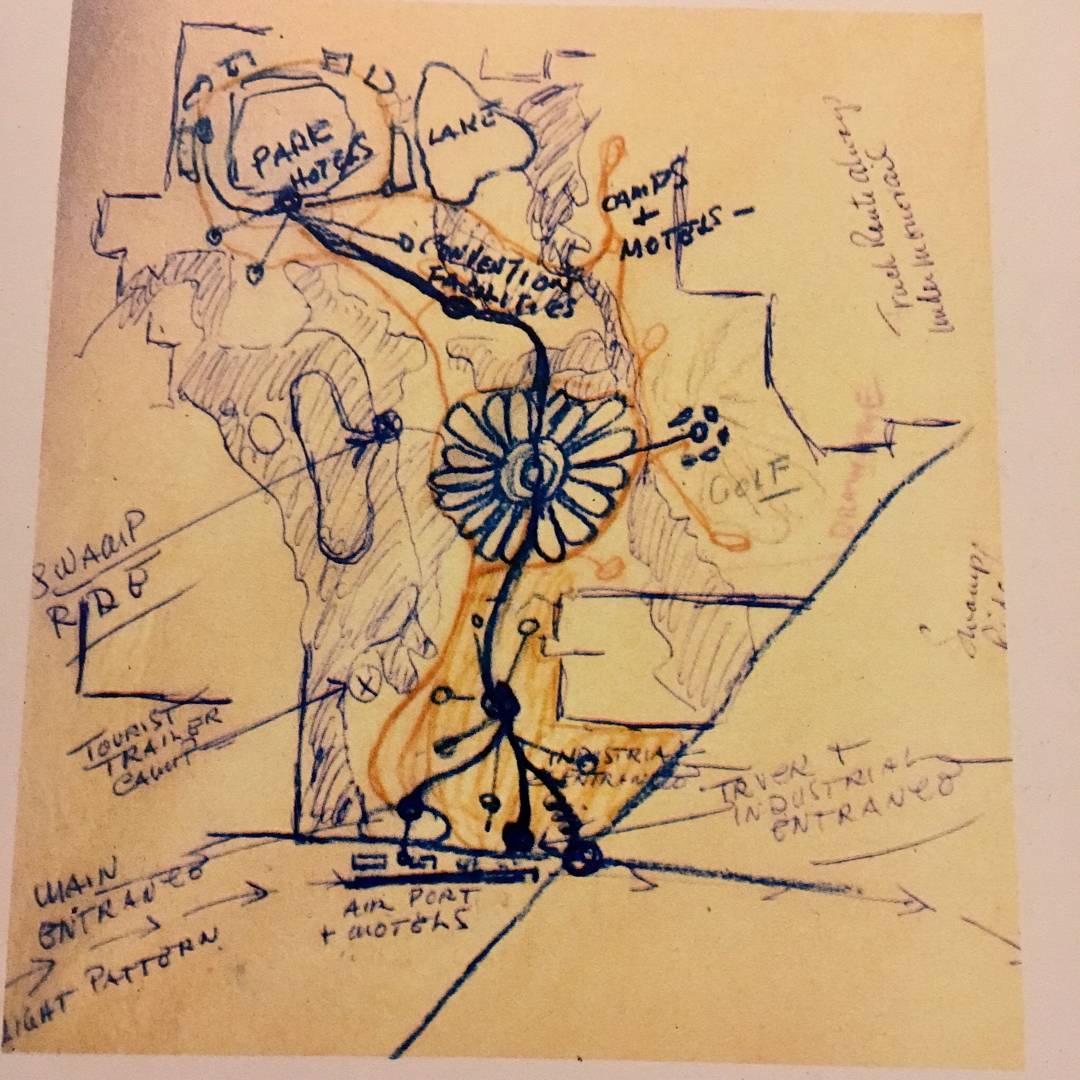 PARK
HOTELS
LAKE
CAMPS
+
MOTELS -
CONVENTION
FACILITIES
Truck Route always
under monorail
GOLF
DRAINAGE
SWAMP
RIDE
Swamp
Ride
TOURIST
TRAILER
INDUSTRIAL
ENTRANCE
TRUCK +
INDUSTRIAL
ENTRANCE
MAIN
ENTRANCE
AIR PORT
+ MOTELS
LIGHT PATTERN